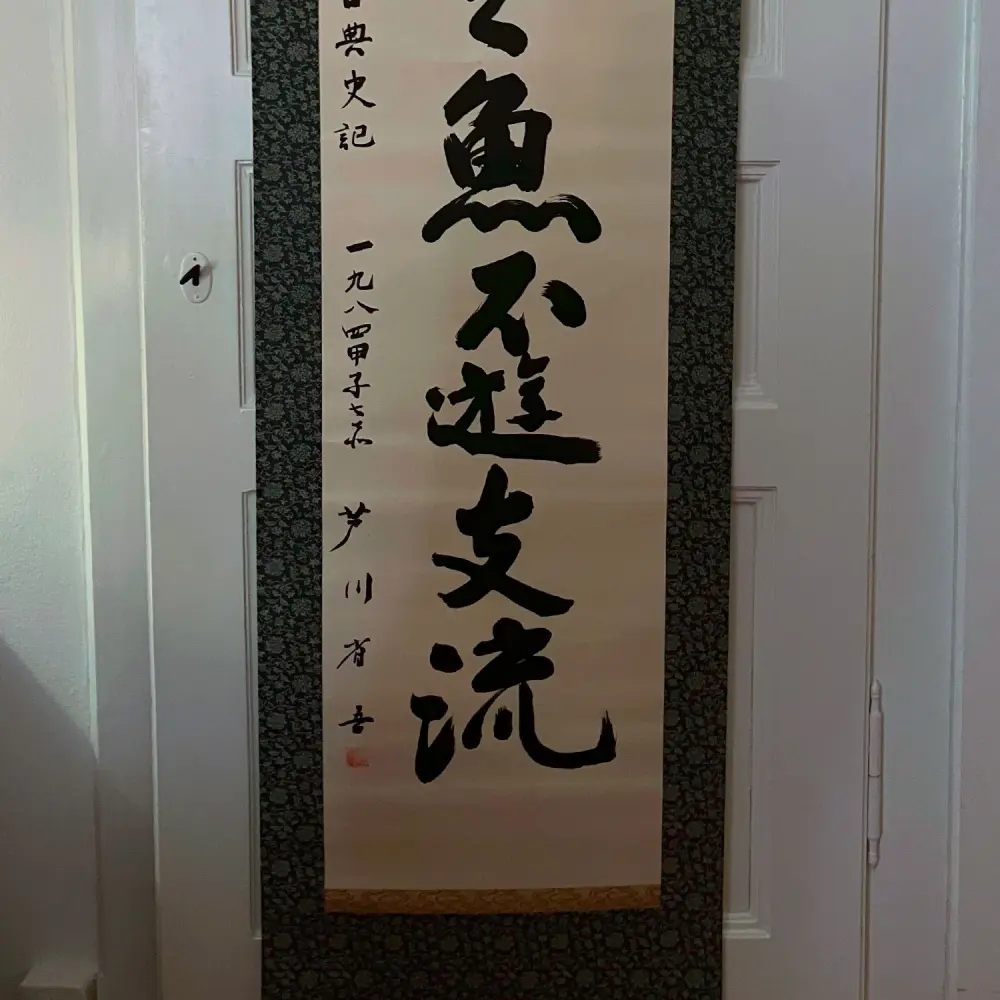 之魚不遊支流
典史記 一九八四甲子七赤 芦川省吾